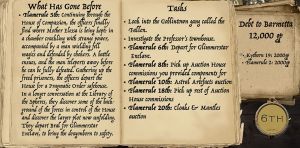 What Has Gone Before
Flamerule 5th: Continuing through the
House of Companion, the officers finally
find where Mother Sleece is being kept in
a chamber crackling with strange power,
accompanied by a man wielding fell
magic and defended by others. A battle
issues, and the man slippers away before
he can be fully defeated. Gathering up the
freed prisoners, the officers depart the
House for a Pragmatic Order safehouse.
In a larger conversation at the Library of
the Spheres, they discover some of the
forces in control of the House
and discover the larger plot now unfolding.
They depart Bral for Glimmerstar
Enclave, to bring the dragonborn to safety.
Tasks
Look into the Gellitonn gang called the
Fallen.
Investigate the Professor's townhouse.
Flamerule 6th: Depart for Glimmerstar
Enclave.
Flamerule 8th: Pick up Auction House
commissions you provided components for
Flamerule 10th: Astral Artifacts auction
Flamerule 18th: Pick up rest of Auction
House commissions
Flamerule 20th: Cloaks & Mantles
auction
Debt to Barnetta
12,000 gp
Kythorn 19: 2000g
Flamerule 1: 2000g
6TH